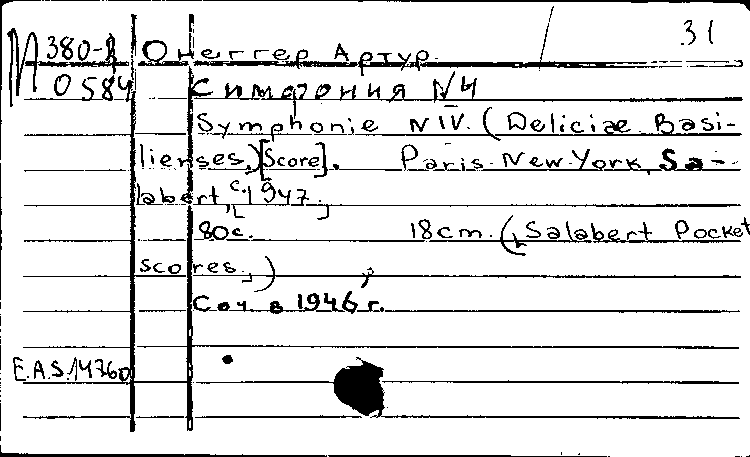 31
М 380-2 Онеггер Артур.
О 584 Симфония №4
Symphonie N IV. (Deliciae Basi-
lienses,) [Score]. Paris-New-York, Sa-
labert, [c. 1947.]
80c. 18cm. (Salabert Pocket
scores.)
Соч. в 1946 г.
E.A.S.14760